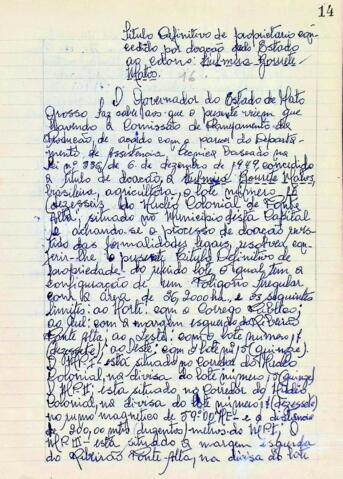 14
Titulo Definitivo de proprietario con-
cedido por doação do Estado
ao colono:
Matos.
16
O Governador do Estado de Mato
Grosso faz saber aos que o presente virem que
havendo a Comissão de Planejamento da
Produção, de acôrdo com o parecer do Departa-
mento de Assistência, Técnica baseado na
lei nº 336, de 6 de dezembro de 1949, concedido
a titulo de doação, a Matos,
brasileira, agricultora, o lote número 16
(dezesseis) do Nucleo Colonial de Fonte
Alta, situado no Municipio desta Capital
e achando-se o processo de doação reves-
tido das formalidades legais, resolve con-
ferir-lhe o presente Titulo Definitivo de
propriedade do referido lote o qual tem a
configuração de um Poligono irregular
com a área de 36,2000 ha. e os seguintes
limites: ao Norte: com o Corrego
ao Sul: com a margem esquerda do Ribeirão
Fonte Alta; ao Leste: com o lote número 17
(dezessete); ao Oeste: com o lote nº 15 (quinze).
O MP.I- está situado no Corredor do Nucleo
Colonial, na divisa do lote número 15 (quinze)
o MP.II- está situado no Corredor do Nucleo
Colonial, na divisa do lote número 17 (dezessete)
no rumo magnetico de e a distancia
de 200,00 mts (duzentos) metros do MP.I; o
MP.III- está situado à margem esquerda
do Ribeirão Fonte Alta, na divisa do lote